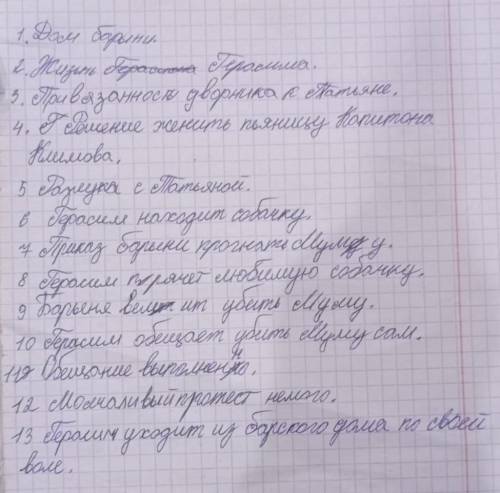 1. Дом барыни.
2. Жизнь Герасима Герасима.
3. Привязанность дворника к Татьяне.
4. Г Решение женить пьяницу Капитона
Климова.
5 Разлука с Татьяной.
6 Герасим находит собачку.
7 Приказ барыни прогнать Муму.
8 Герасим прячет любимую собачку.
9 Барыня велит убить Муму.
10 Герасим обещает убить Муму сам.
11 Обещание выполнено.
12 Молчаливый протест немого.
13 Герасим уходит из барского дома по своей
воле.